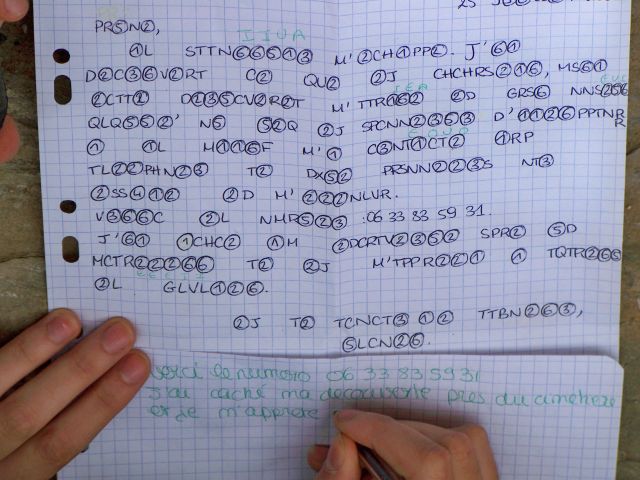 25
PR⑤N②,
IIUA
①L STTN⑥⑥⑤①③ M'②CH①PP②. J'⑥①
D②C③⑥V②RT C② QU② ②J CHCHRS②①⑥, MS⑥①
IEA
②CTT② D②③⑤CV②R②T M'TTR①⑥② ②D GRS⑥ NNS②⑤⑥
QLQ⑤⑤②' N⑤ ⑤②Q ②J SPCNN②③⑤③ D'①①②⑥PPTN
① ①L M①①⑥F M'① C③NT①CT② ①RP
TL②②PHN②③ T② DX⑤② PRSNN②②③S NT③
②SS④①② ②D M'②②②NLVR.
V③⑥⑥C ②L NMR⑤②③ :06 33 83 59 31.
J'⑥① ①CHC② ①M ②DCRTV②③⑤② SPR② ⑤D
MCTR②②②⑥⑥ T② ②J M'TPPR②②① ① TQTR②⑥⑤
②L GLVL①②⑥.
②J T② TCNCT③①② TTBN②⑥③,
⑤LCN②⑥.
voici le numero 06 33 83 59 31
J'ai caché ma decouverte près du cimetiere
et je m'apprete